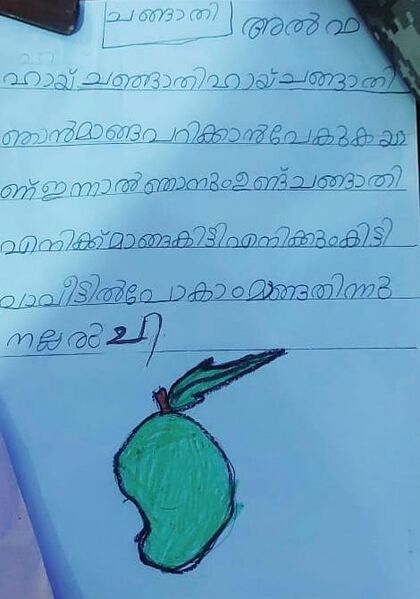 ചങ്ങാതി അൽഫ
ഹായ് ചങ്ങാതി ഹായ് ചങ്ങാതി
ഞാൻ മാങ്ങ പറിക്കാൻ പോകുകയാ
ണ് ഇന്നാൽ ഞാനും ഉണ്ട് ചങ്ങാതി
എനിക്ക് മാങ്ങ കിട്ടി എനിക്കും കിട്ടി
വാ വീട്ടിൽ പോകാം മാങ്ങ തിന്നു
നല്ല രുചി